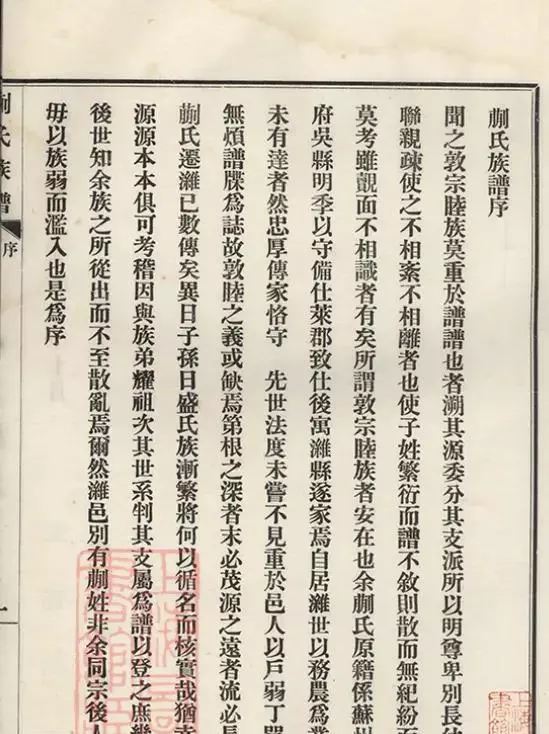 蒯氏族譜序
聞之敦宗睦族莫重於譜譜也者溯其源委分其支派所以明尊卑別長幼
聯親疎使之不相紊不相離者也使子姓繁衍而譜不敘則散而無紀紛而
莫考雖覿面不相識者有矣所謂敦宗睦族者安在也余蒯氏原籍係蘇州
府吳縣明季以守備仕萊郡致仕後寓濰縣遂家焉自居濰世以務農爲業
未有達者然忠厚傳家恪守　先世法度未嘗不見重於邑人以戶弱丁單
無煩譜牒爲誌故敦睦之義或缺焉第根之深者末必茂源之遠者流必長
蒯氏遷濰已數傳矣異日子孫日盛氏族漸繁將何以循名而核實哉猶幸
源源本本俱可考稽因與族弟耀祖次其世系判其支屬爲譜以登之庶幾
後世知余族之所從出而不至散亂焉爾然濰邑別有蒯姓非余同宗後人
毋以族弱而濫入也是爲序
蒯氏族譜
序
一